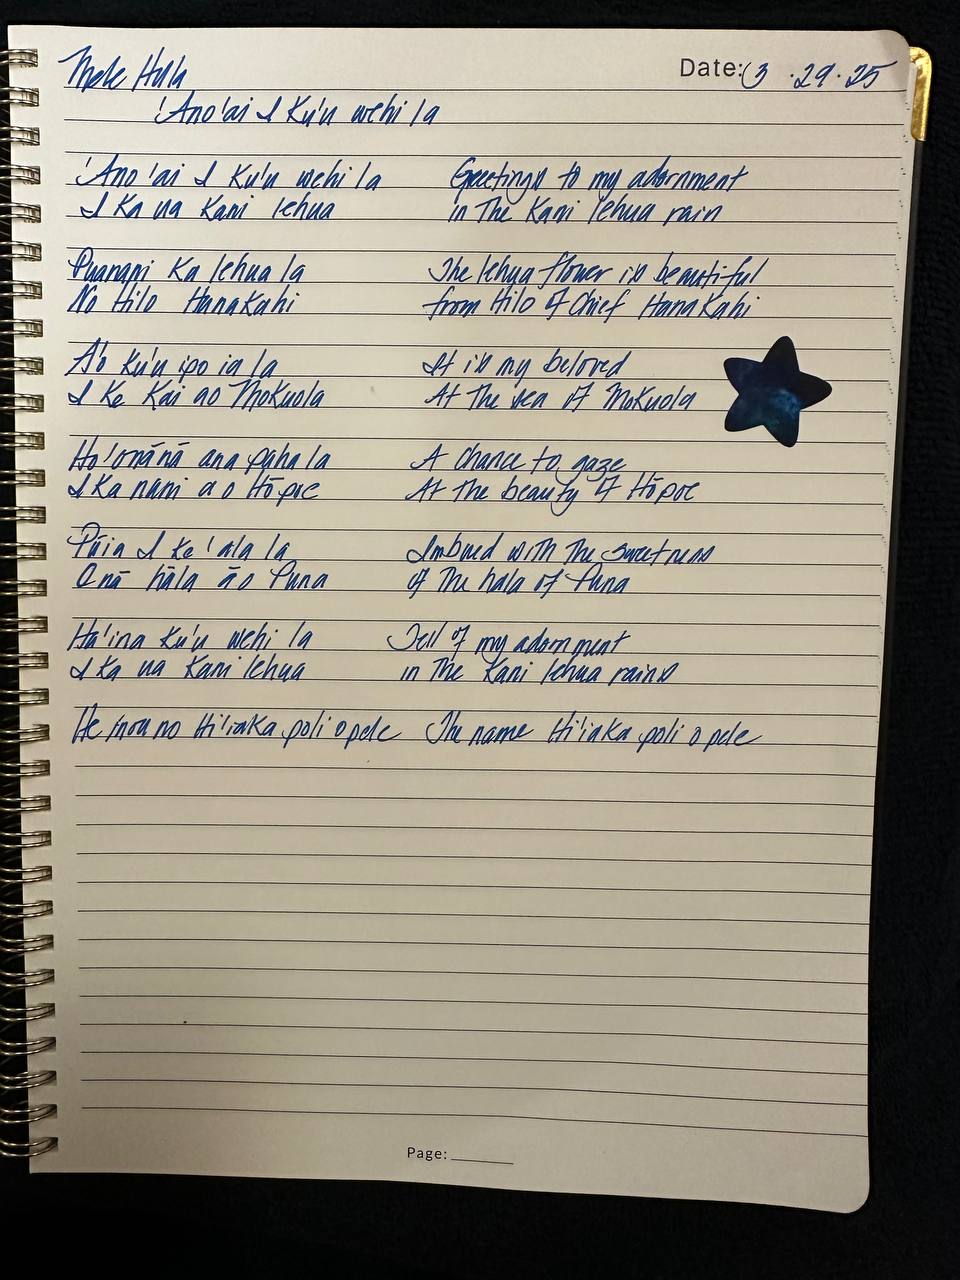 Mele Hula Date: 3 · 29 · 25
'Ano'ai I Ku'u wehi la
'Ano'ai I Ku'u wehi la Greetings to my adornment
I Ka ua Kani lehua in The Kani lehua rain
Puanani Ka lehua la The lehua flower is beautiful
No Hilo HanaKahi from Hilo of Chief HanaKahi
A'o Ku'u ipo ia la It is my beloved
I Ke Kai ao MoKuola At The sea of MoKuola
Ho'onānā ana paha la A chance to gaze
I Ka nani a o Hōpoe At The beauty of Hōpoe
Pūia I Ke 'ala la Imbued with The sweetness
O nā hāla āo Puna of The hala of Puna
Ha'ina Ku'u wehi la Tell of my adornment
I Ka ua Kani lehua in The Kani lehua rains
He inoa no Hi'iaKa poli o pele The name Hi'iaKa poli o pele
Page: